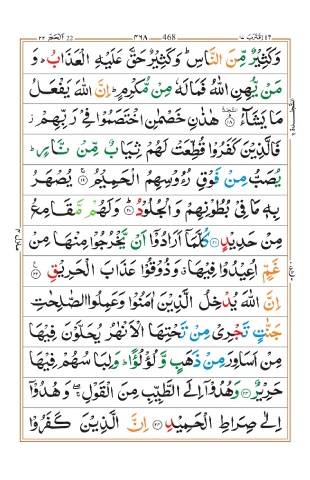 ٢٢ الحج 22 ٣٦٨ 468 اقترب ١٧
وَكَثِيْرٌ مِّنَ النَّاسِ ؕ وَكَثِيْرٌ حَقَّ عَلَيْهِ الْعَذَابُ ؕ وَ
مَنْ يُّهِنِ اللّٰهُ فَمَالَهٗ مِنْ مُّكْرِمٍ ؕ اِنَّ اللّٰهَ يَفْعَلُ
مَا يَشَآءُ ۩ ﴿۱۸﴾ هٰذٰنِ خَصْمٰنِ اخْتَصَمُوْا فِيْ رَبِّهِمْ ؗ
فَالَّذِيْنَ كَفَرُوْا قُطِّعَتْ لَهُمْ ثِيَابٌ مِّنْ نَّارٍ ؕ
يُصَبُّ مِنْ فَوْقِ رُءُوْسِهِمُ الْحَمِيْمُ ﴿۱۹﴾ يُصْهَرُ
بِهٖ مَا فِيْ بُطُوْنِهِمْ وَالْجُلُوْدُ ﴿۲۰﴾ وَلَهُمْ مَّقَامِعُ
مِنْ حَدِيْدٍ ﴿۲۱﴾ كُلَّمَاۤ اَرَادُوْۤا اَنْ يَّخْرُجُوْا مِنْهَا مِنْ
غَمٍّ اُعِيْدُوْا فِيْهَا ۗ وَذُوْقُوْا عَذَابَ الْحَرِيْقِ ﴿۲۲﴾
اِنَّ اللّٰهَ يُدْخِلُ الَّذِيْنَ اٰمَنُوْا وَعَمِلُوا الصّٰلِحٰتِ
جَنّٰتٍ تَجْرِيْ مِنْ تَحْتِهَا الْاَنْهٰرُ يُحَلَّوْنَ فِيْهَا
مِنْ اَسَاوِرَ مِنْ ذَهَبٍ وَّلُؤْلُؤًا ؕ وَلِبَاسُهُمْ فِيْهَا
حَرِيْرٌ ﴿۲۳﴾ وَهُدُوْۤا اِلَى الطَّيِّبِ مِنَ الْقَوْلِ ۖۚ وَهُدُوْۤا
اِلٰى صِرَاطِ الْحَمِيْدِ ﴿۲۴﴾ اِنَّ الَّذِيْنَ كَفَرُوْا